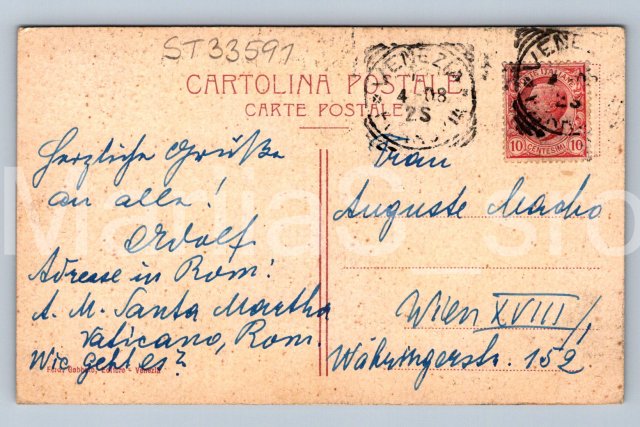 ST33591
CARTOLINA POSTALE
CARTE POSTALE
VENEZIA
4 08
2S
VENE
10 CENTESIMI 10
Herzliche Grüße
an alle!
Adolf
Adresse in Rom:
A. M. Santa Martha
Vaticano, Rom.
Wie geht es?
Frau
Auguste Macho
Wien XVIII/1
Währingerstr. 152
Ferd. Gobbato, Editore - Venezia